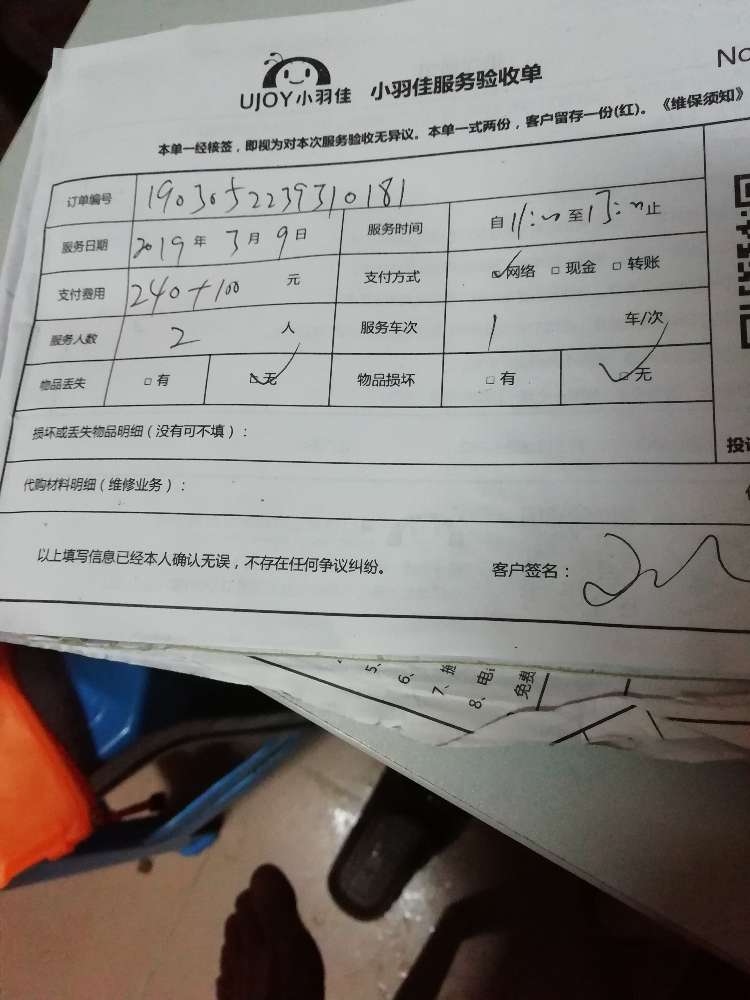 UJOY小羽佳 小羽佳服务验收单
No
本单一经核签，即视为对本次服务验收无异议。本单一式两份，客户留存一份(红)。《维保须知》
订单编号 1903052239310181
服务日期 2019年3月9日 服务时间 自11:00至13:00止
支付费用 240+100元 支付方式 网络 现金 转账
服务人数 2人 服务车次 1车/次
物品丢失 有 无 物品损坏 有 无
损坏或丢失物品明细（没有可不填）：
投
代购材料明细（维修业务）：
以上填写信息已经本人确认无误，不存在任何争议纠纷。 客户签名：
5、
6、
7、
8、电
免费